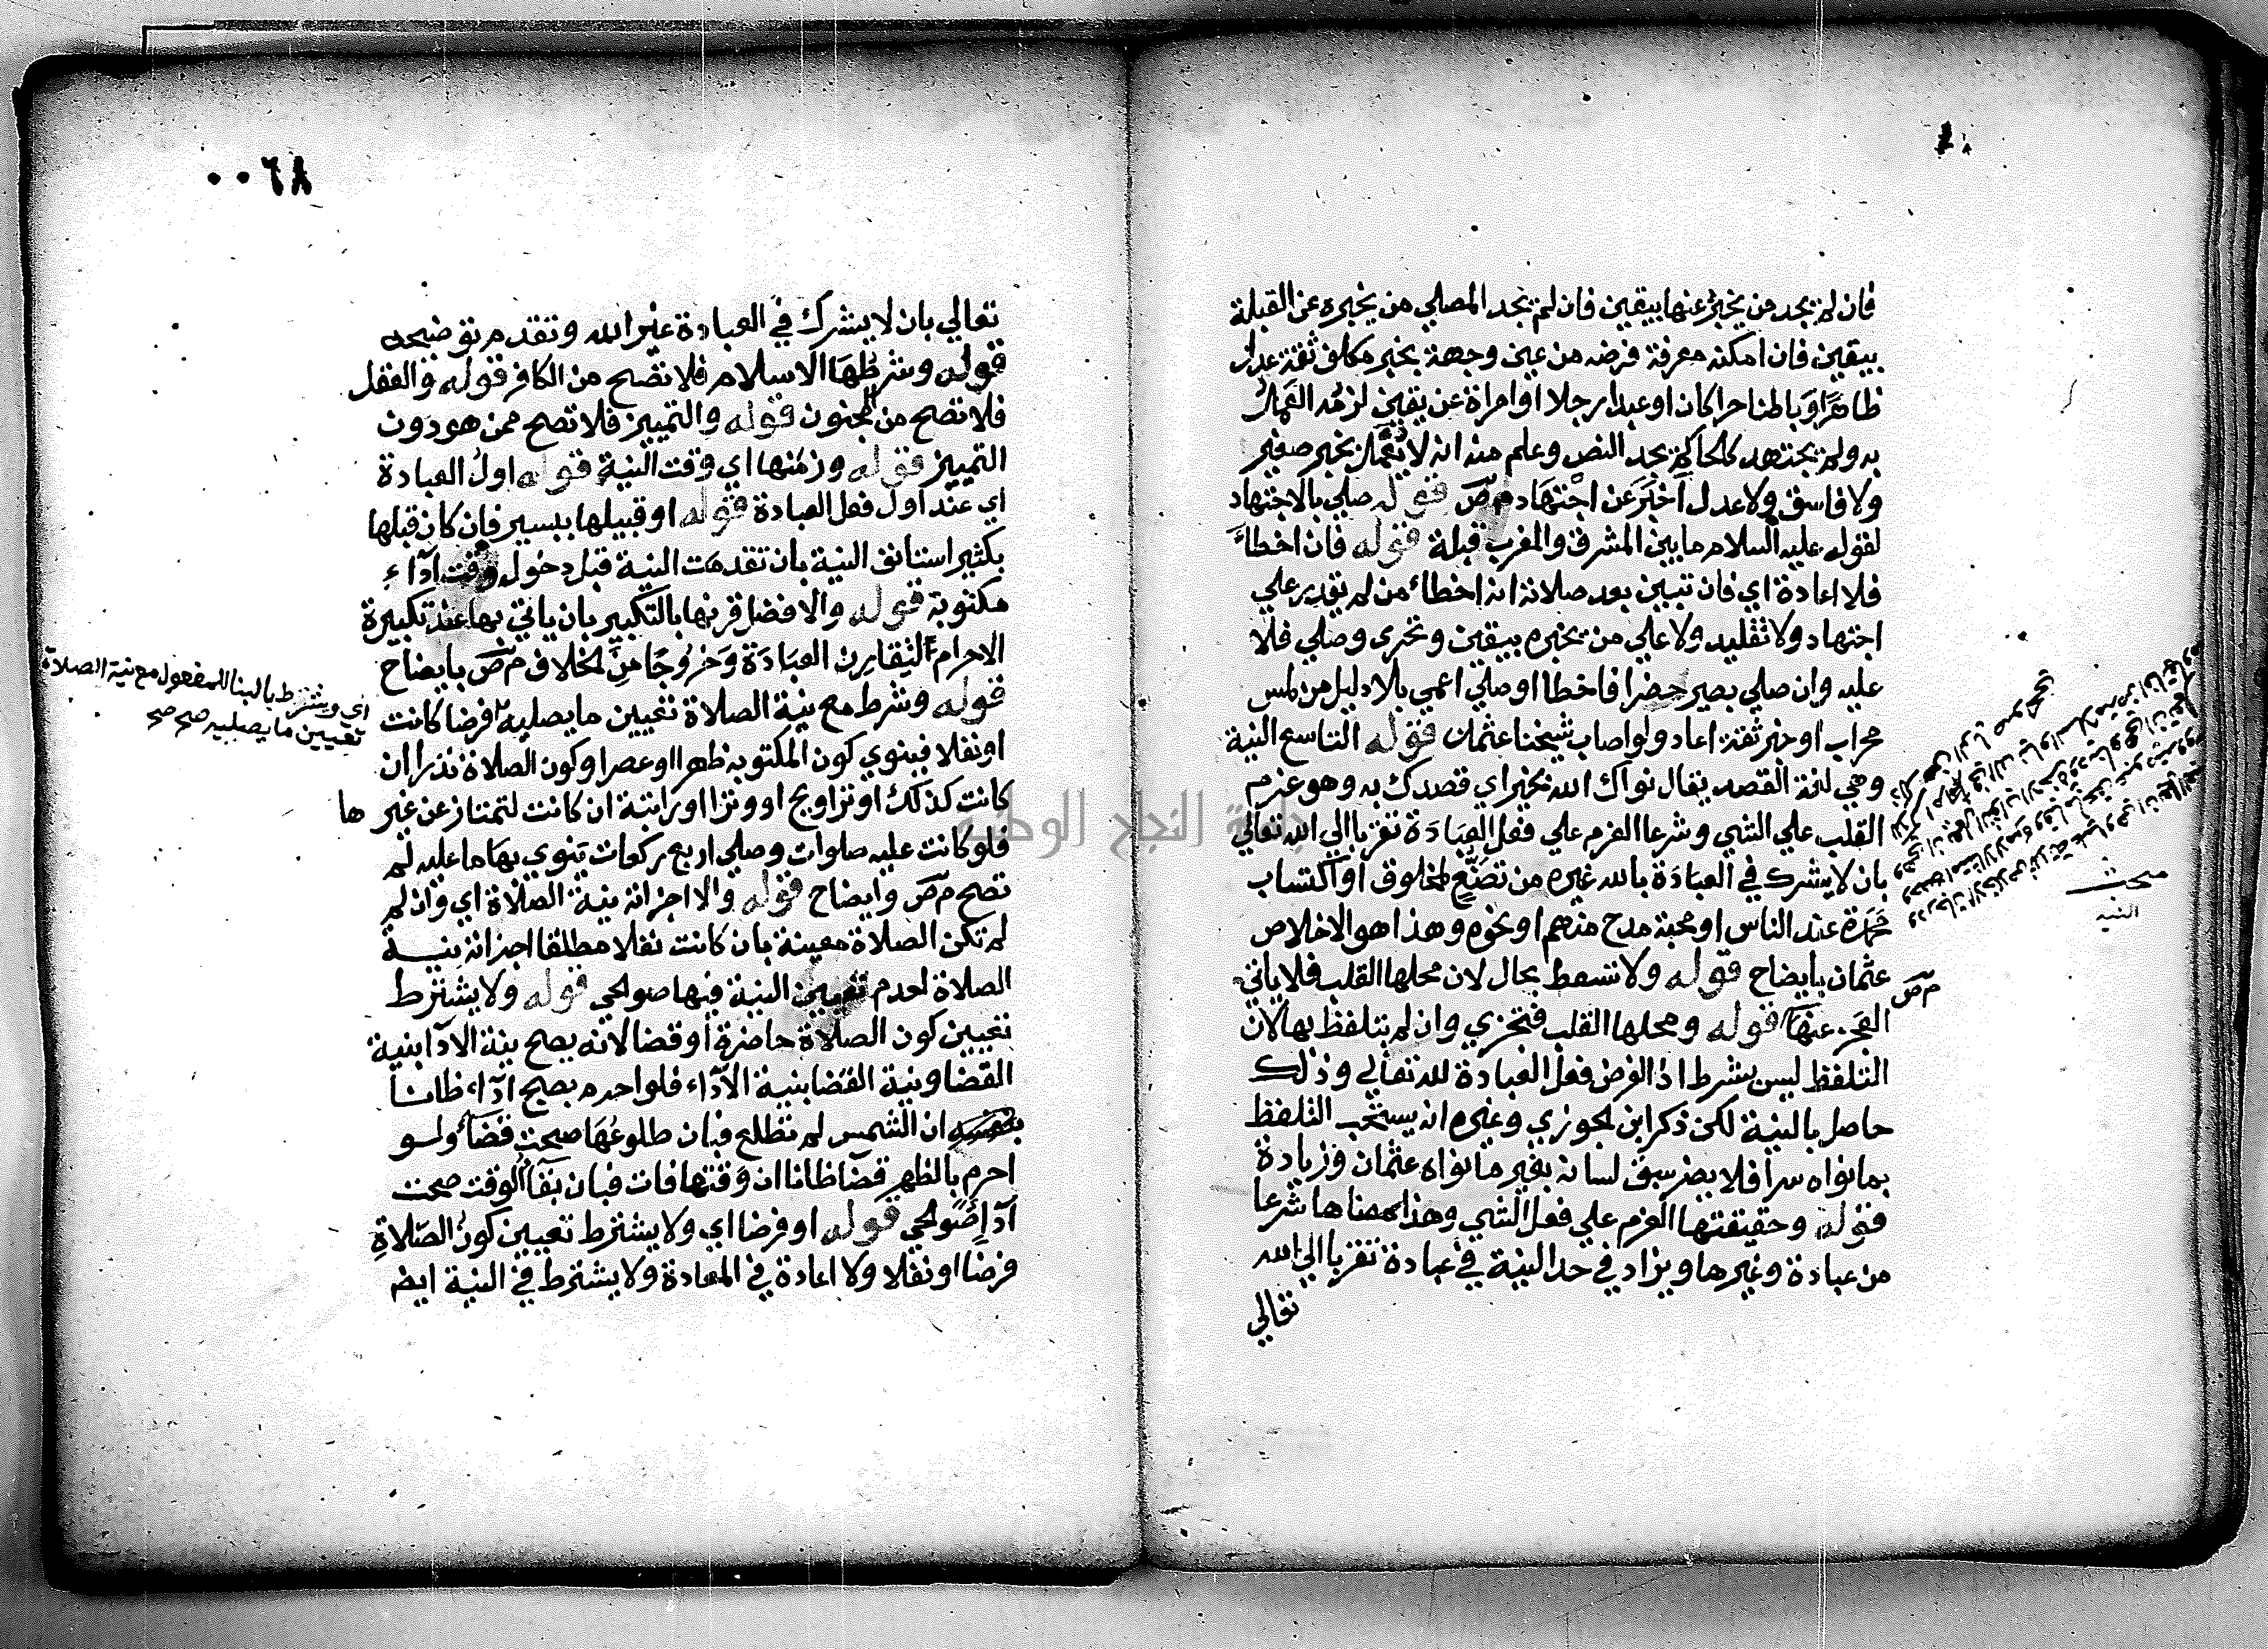 فان لم يجد من يخبره عنها بيقين فان لم يجد المصلي من يخبره عن القبلة
بيقين فان امكنه معرفة فرضه من عين وجهة بخبر مكلف ثقة عدل
ظاهرًا وباطنا حرا كان او عبدا رجلا او امراة عن يقين لزمه العمل
به ولم يجتهد كالحاكم يجد النص وعلم منه انه لا يعمل بخبر صغير
ولا فاسق ولا عدل اخبر عن اجتهاد م ص قوله صلي بالاجتهاد
لقوله عليه السلام ما بين المشرق والمغرب قبلة قوله فان اخطاء
فلا اعادة اي فان تبين بعد صلاته انه اخطاء من لم يقدر علي
اجتهاد ولا تقليد ولا علي من يخبره بيقين وتحرى وصلي فلا
عليه وان صلي بصير حضرا فاخطا او صلي اعمي بلا دليل من لمس
محراب او خبر ثقة اعاد ولو اصاب شيخنا عثمان قوله التاسع النية
وهي لغة القصد يقال نواك الله بخير اي قصدك به وهو عزم
القلب علي الشي وشرعا العزم علي فعل العبادة تقربا الي الله تعالي
بان لا يشرك في العبادة بالله غيره من تصنع لمخلوق او اكتساب
محمدة عند الناس او محبة مدح منهم او نحوه وهذا هو الاخلاص
عثمان بايضاح قوله ولا تسقط بحال لان محلها القلب فلا ياتي
العجز عنها قوله ومحلها القلب فتجزي وان لم يتلفظ بها لان
التلفظ ليس بشرط اذ الغرض فعل العبادة لله تعالي وذلك
حاصل بالنية لكن ذكر ابن الجوزي وغيره انه يستحب التلفظ
بما نواه سرا فلا يضر سبق لسانه بغير ما نواه عثمان وزيادة
قوله وحقيقتها العزم علي فعل الشي وهذا معناها شرعا
من عبادة وغيرها ويزاد في حد النية في عبادة تقربا الي الله
تعالي
مبحث
النية
م ص
٨٦٠٠
تعالي بان لا يشرك في العبادة غير الله وتقدم توضيحه
قوله وشرطها الاسلام فلا تصح من الكافر قوله والعقل
فلا تصح من المجنون قوله والتمييز فلا تصح ممن هو دون
التمييز قوله وزمنها اي وقت النية قوله اول العبادة
اي عند اول فعل العبادة قوله او قبيلها بيسير فان كان قبلها
بكثير استانف النية بان تقدمت النية قبل دخول وقت آداء
مكتوبة قوله والافضل قرنها بالتكبير بان ياتي بها عند تكبيرة
الاحرام لتقارن العبادة وخروجا من الخلاف م ص بايضاح
قوله وشرط مع نية الصلاة تعيين ما يصليه فرضا كانت
او نفلا فينوي كون المكتوبة ظهرا او عصرا وكون الصلاة نذرا ان
كانت كذلك او تراويح او وترا او راتبة ان كانت لتمتاز عن غيرها
فلو كانت عليه صلوات وصلي اربع ركعات ينوي بها ما عليه لم
تصح م ص وايضاح قوله والا اجزاته نية الصلاة اي وان لم
لم تكن الصلاة معينة بان كانت نفلا مطلقا اجزاته نية
الصلاة لعدم تعيين النية فيها صوالحي قوله ولا يشترط
تعيين كون الصلاة حاضرة أو قضا لانه يصح نية الآدا بنية
القضا وبنية القضا بنية الآداء فلو احرم بصبح آداء ظانا
ان الشمس لم تطلع فبان طلوعها صحت قضاً ولو
احرم بالظهر قضآ ظانا ان وقتها فات فبان بقآ الوقت صحت
آدآ صوالحي قوله او فرضا اي ولا يشترط تعيين كون الصلاة
فرضا او نفلا ولا اعادة في المعادة ولا يشترط في النية ايض
اي ويشترط بالبنا للمفعول مع نية الصلاة
تعيين ما يصليه صح صح
جامعة النجاح الوطنية